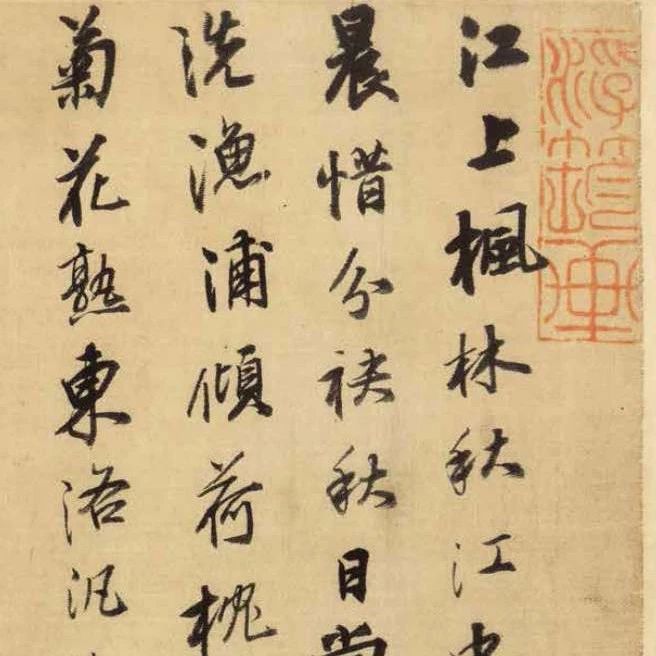 江上楓林秋江
晨惜分袂秋日尚
洗漁浦傾荷槐
菊花熟東洛汎